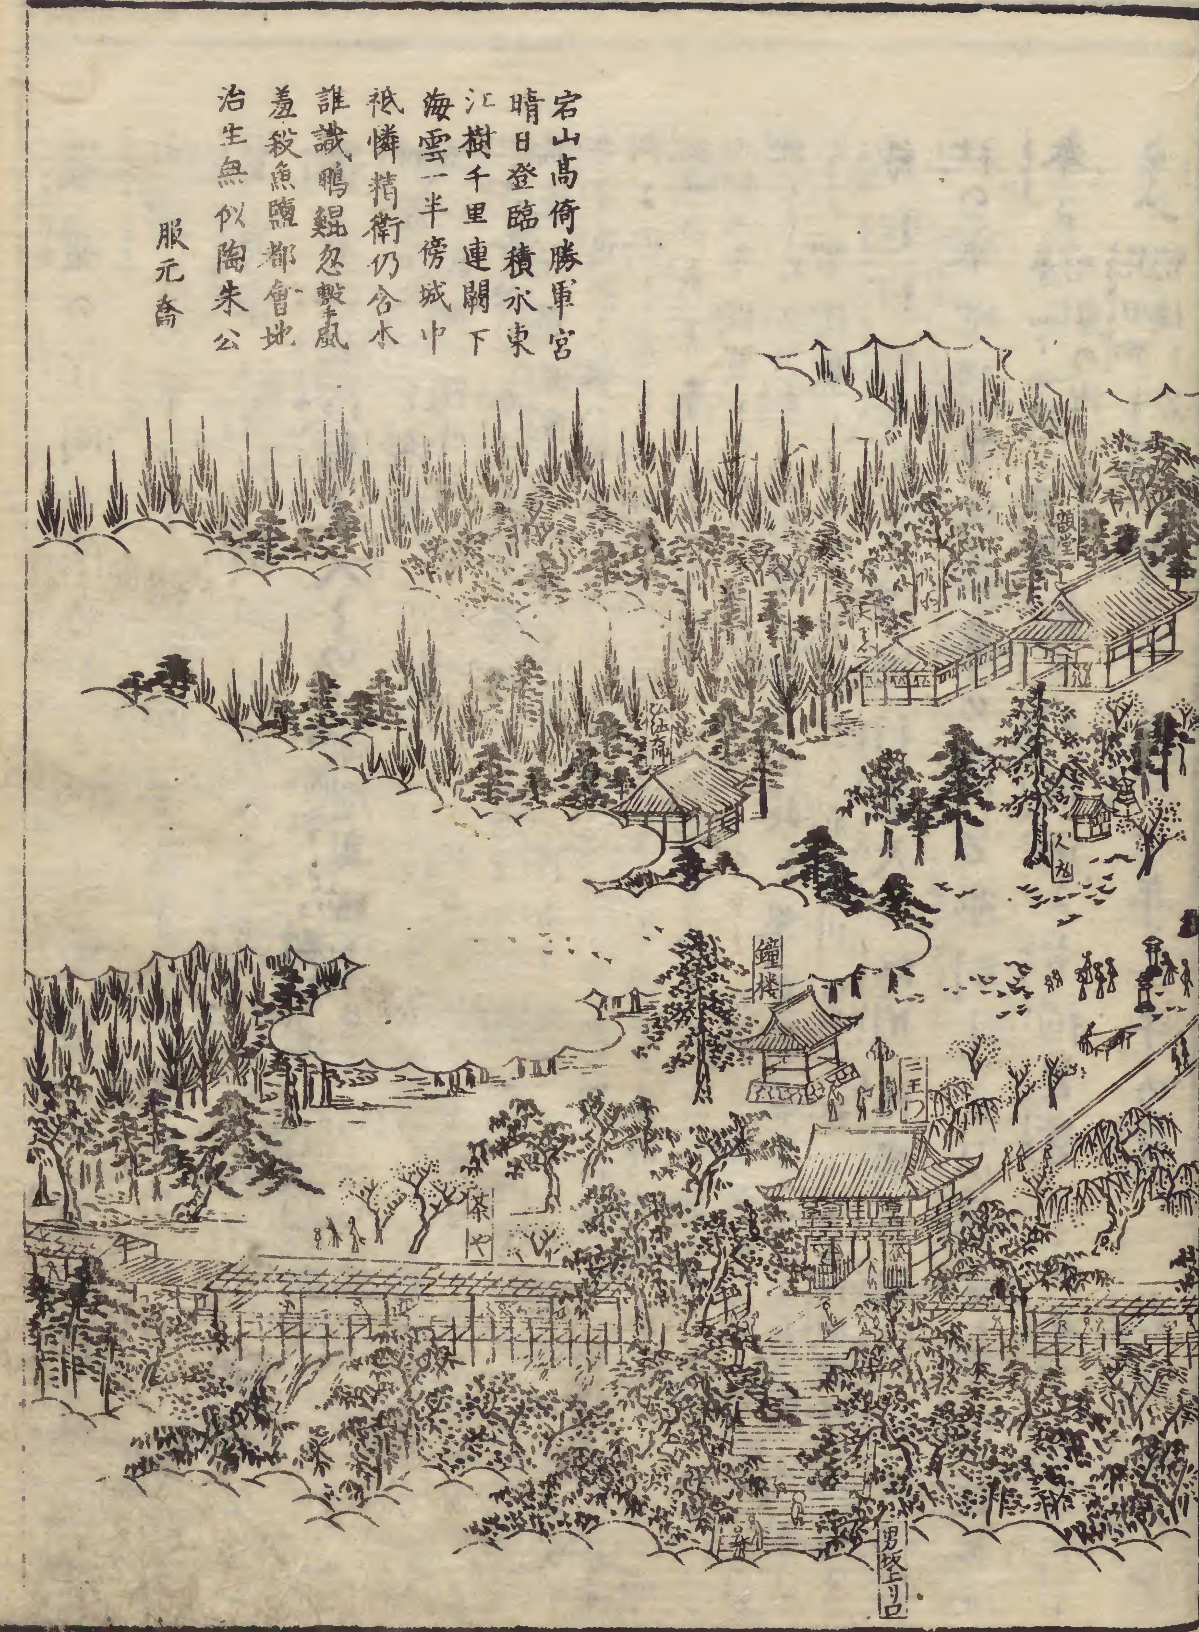 宕山高倚勝軍宮
晴日登臨積水東
江樹千里連闕下
海雲一半傍城中
祗憐精衛仍含木
誰識鵬鯤忽擊風
羞殺魚鹽都會地
治生無似陶朱公
服元喬
額堂
鐘楼
二王门
茶や
男坂上り口